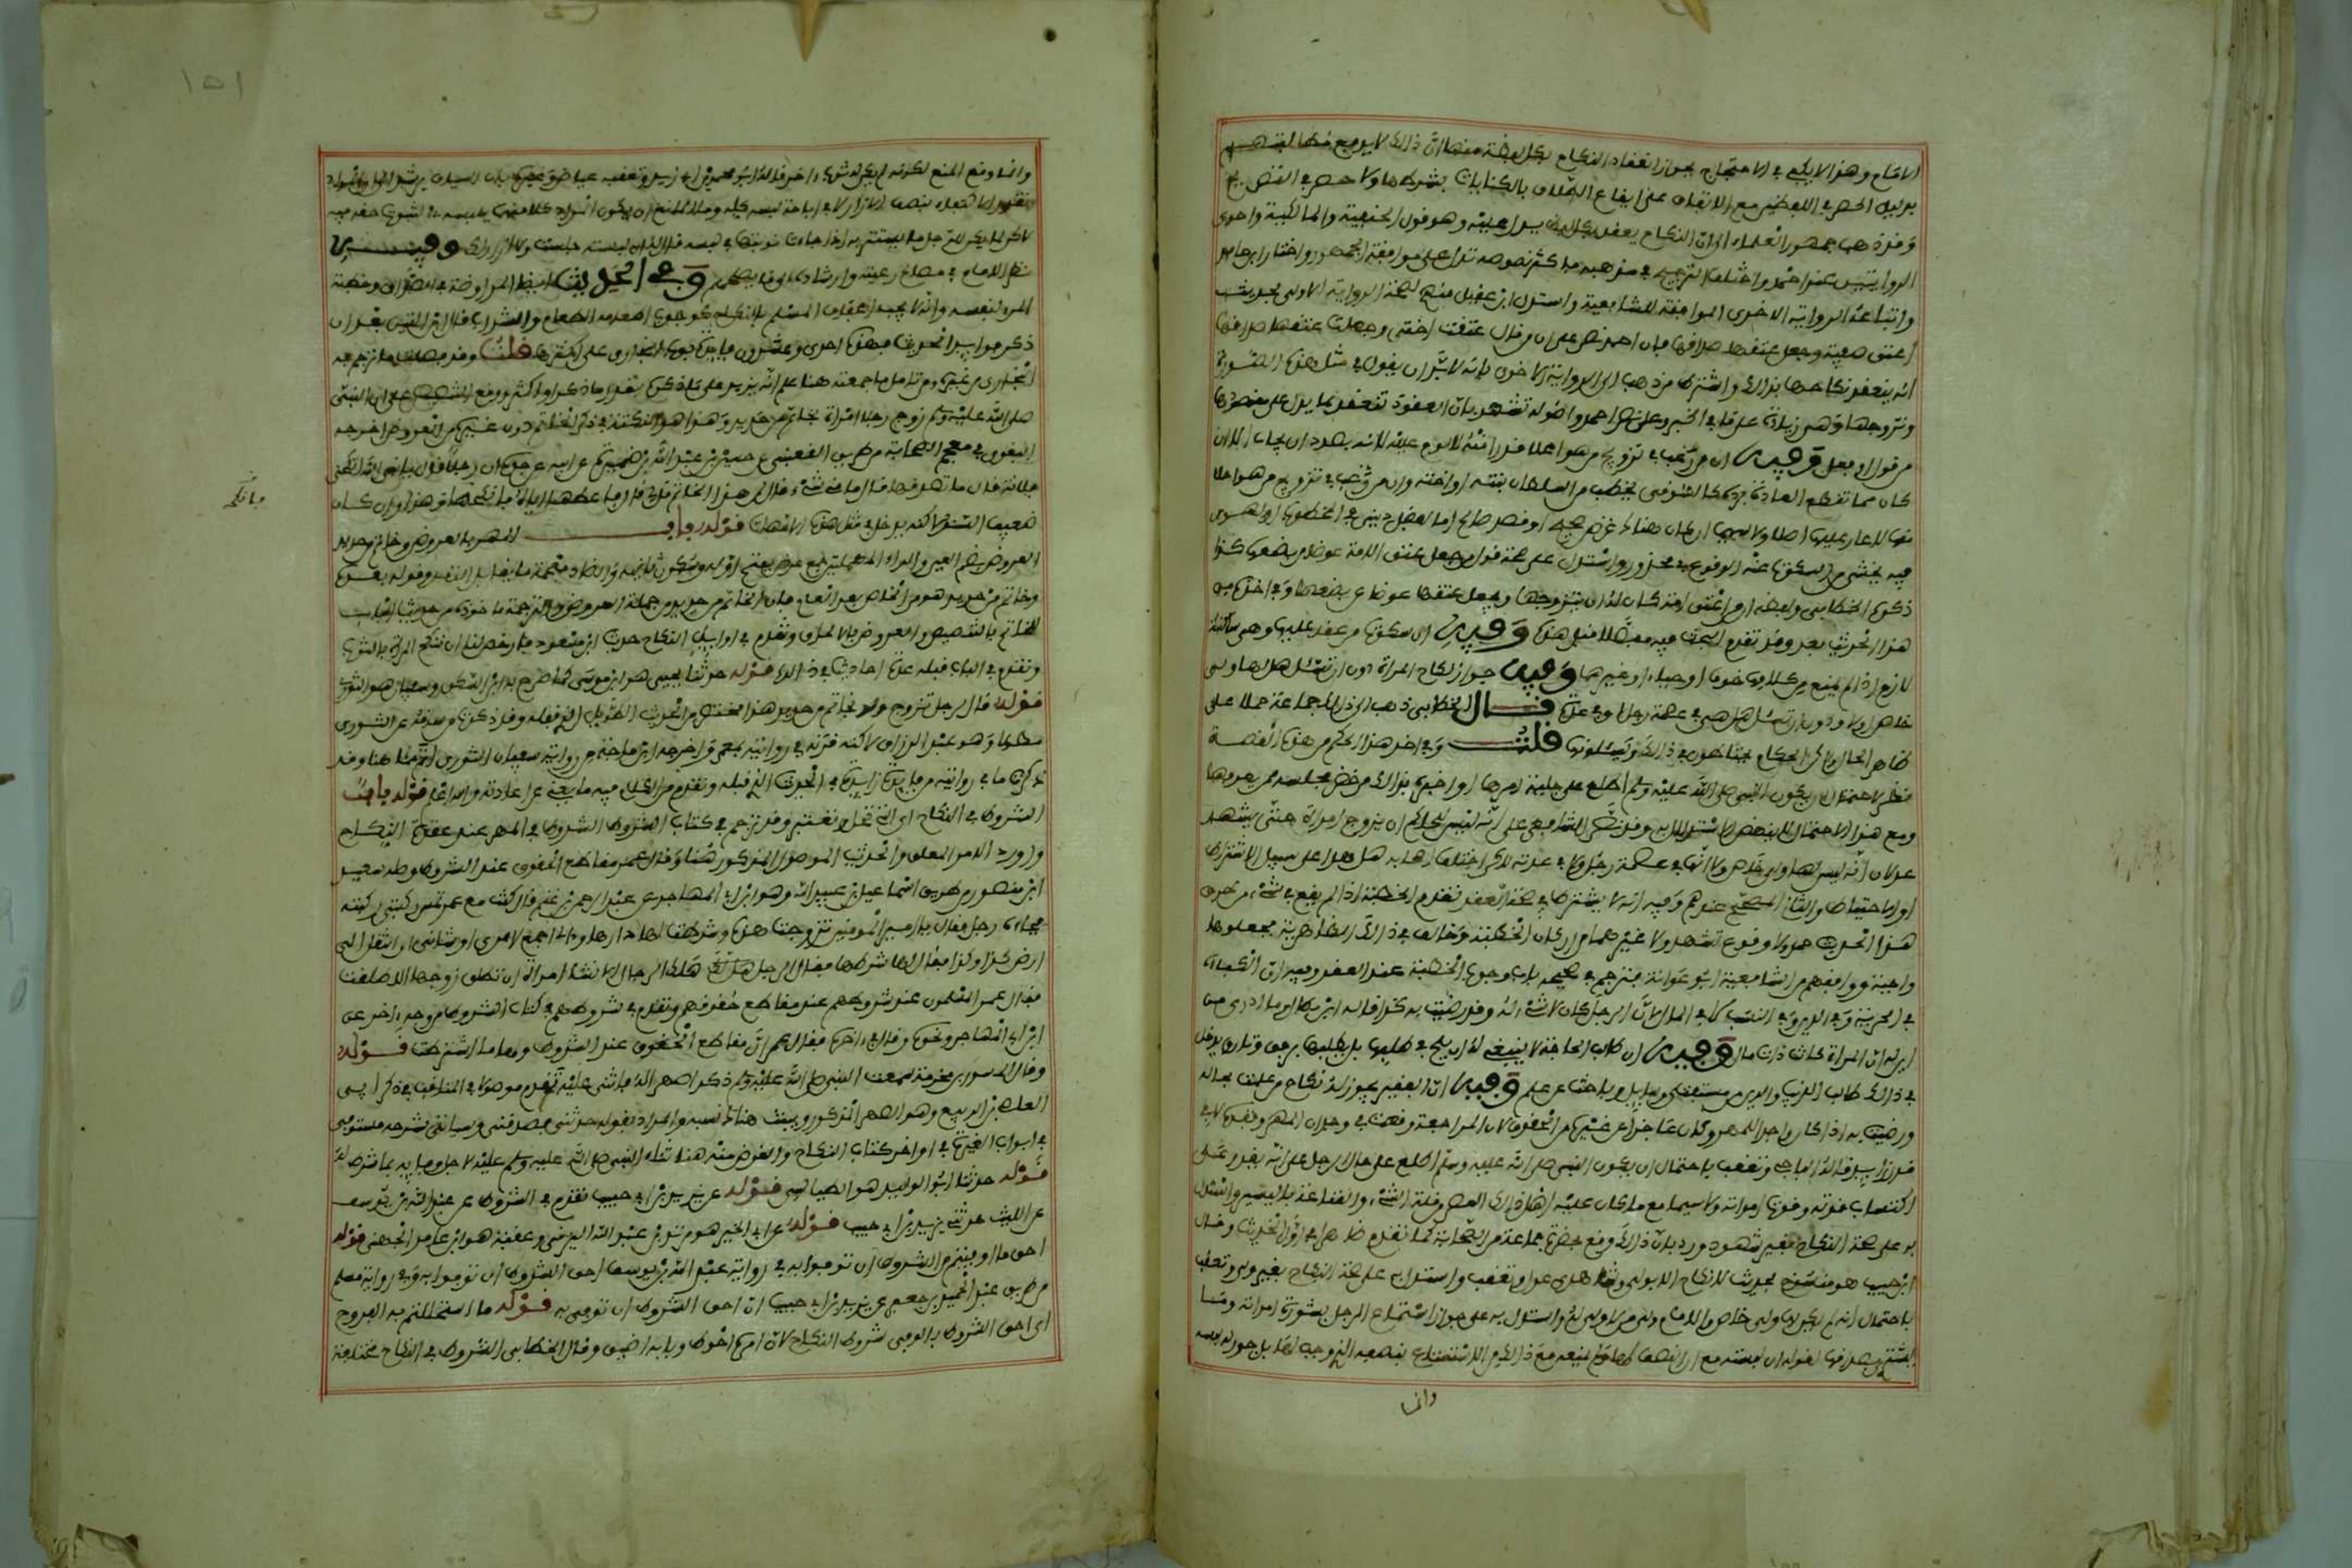 الامام وهذا لا يكفي في الاحتجاج بجواز انعقاد النكاح بكل لفظة منها ان ذلك لا يرفع
بدليل الحصر في اللفظين مع الاتفاق على ايقاع الطلاق بالكنايات بشرطها ولا حصر في
وقد ذهب جمهور العلماء الى ان النكاح ينعقد بكل لفظ يدل عليه وهو قول الحنفية والمالكية واحدى
الروايتين عن احمد واختلف الترجيح في مذهبه فاكثر نصوصه تدل على موافقة الجمهور واختار ابن حامد
واتباعه الرواية الاخرى الموافقة للشافعية واستدل ابن عقيل منهم لصحة الرواية الاولى بحديث
اعتق صفية وجعل عتقها صداقها فان احمد نص على ان من قال عتقت امتي وجعلت عتقها صداقها
انه ينعقد نكاحها بذلك واشترط من ذهب الى الرواية الاخرى بانه لا بد ان يقول في مثل هذه الصورة
وتزوجتها وهي زيادة على ما في الخبر وعلى نص احمد واصوله تشهد بان العقود تنعقد بما يدل على مقصودها
من قول او فعل وفيه ان من رغب في تزويج من هو اعلا قدرا منه لا لوم عليه لانه بصدد ان يجاب الا ان
كان مما تقطع العادة برده كالسوقي يخطب من السلطان بنته او اخته وان من رغبت في تزويج من هو اعلا
منها لا عار عليها اصلا ولا سيما ان كان هناك غرض صحيح او قصد صالح اما لفضل ديني في المخطوب او لهوى
فيه يخشى من السكوت عنه الوقوع في محذور واستدل على صحة قول من جعل عتق الامة عوضا من بضعها كذا
ذكره الخطابي ولفظه ان من اعتق امة كان له ان يتزوجها ويجعل عتقها عوضا عن بضعها وفي اخذه من
هذا الحديث بعد وقد تقدم البحث فيه مفصلا قبل هذا وفيه ان سكوت من عقد عليها وهي ساكتة
لازم اذا لم يمنع من كلامها خوف او حياء او غيرهما وفيه جواز نكاح المراة دون ان تسئل هل لها ولي
خاص اولا ودون ان تسئل هل هي في عصمة رجل او في عدة قال الخطابي ذهب الى ذلك جماعة حملا على
ظاهر الحال ولكن الحكام يحتاطون في ذلك ويسئلونها قلت وفي اخذ هذا الحكم من هذه القصة
نظر لاحتمال ان يكون النبي صلى الله عليه وسلم اطلع على جلية امرها او اخبره بذلك من حضر مجلسه ممن يعرفها
ومع هذا الاحتمال لا ينهض الاستدلال به وقد نص الشافعي على انه ليس للحاكم ان يزوج امراة حتى يشهد
عدلان انه ليس لها ولي خاص ولا انها في عصمة رجل ولا في عدته لكن اختلف اصحابه هل هذا على سبيل الاشتراط
او الاحتياط والثاني المصحح عندهم وفيه انه لا يشترط في صحة العقد تقدم الخطبة اذ لم يقع في شيء من طرق
هذا الحديث وقوع تشهد ولا غيره من اركان الخطبة وخالف في ذلك الظاهرية فجعلوها
واجبة ووافقهم من الشافعية ابو عوانة فترجم في صحيحه باب وجوب الخطبة عند العقد وفيه ان الكفاءة
في الحرية وفي الدين وفي النسب لا في المال لان الرجل كان لا شيء له وقد رضيت به كذا قاله ابن بطال وما ادري من
اين له ان المراة كانت ذات مال وفيه ان طالب الحاجة لا ينبغي له ان يلح في طلبها بل يطلبها برفق وتان يدخل
في ذلك طالب الدنيا والدين من مستفت وسائل وباحث عن علم وفيه ان الفقير يجوز له نكاح من علمت بحاله
ورضيت به اذا كان واجدا للمهر وكان عاجزا عن غيره من الحقوق لان المراجعة وقعت في وجدان المهر وفقده لا في
قدر زايد قاله الباجي وتعقب باحتمال ان يكون النبي صلى الله عليه وسلم اطلع على حال الرجل على انه يقدر على
اكتساب قوته وقوت امراته ولا سيما مع ما كان عليه اهل ذلك العصر من قلة الشيء والقناعة باليسير واستدل
به على صحة النكاح بغير شهود ورد بان ذلك وقع بحضرة جماعة من الصحابة كما تقدم ظاهرا في اول الحديث وقال
ابن حبيب هو منسوخ بحديث لا نكاح الا بولي وشاهدي عدل وتعقب واستدل به على صحة النكاح بغير ولي وتعقب
باحتمال انه لم يكن لها ولي خاص والامام ولي من لا ولي له واستدل به على جواز استمتاع الرجل بشورة امراته وما
يشترى بصداقها لقوله ان لبسته مع ان النصف لها ولم يمنعه مع ذلك من الاستمتاع بنصفه الذي وجب لها بل جوز له لبسه
وانما
١٥١
وانما وقع المنع لكونه لم يكن له ثوب اخر قاله ابو محمد بن ابي زيد وتعقبه عياض وغيره بان السياق يرشد الى ان المراد
تعذر الاكتفاء بنصف الازار لا في اباحة لبسه كله وما المانع ان يكون المراد كلا منهما يلبسه مهاياة لثبوت حقه فيه
لاكن لما لم يكن للرجل ما يستتر به اذا جاءت نوبتها في لبسه قال له ان لبسته جلست ولا ازار لك وفيه
نظر الامام في مصالح رعيته وارشاده الى ما يصلحهم وفي الحديث ايضا المراوضة في الصداق وخطبة
المرء لنفسه وانه لا يجب اعفاف المسلم بالنكاح كوجوب اطعامه الطعام والشراب قال ابن التين بعد ان
ذكر فوايد الحديث فهذه احدى وعشرون فايدة بوب البخاري على اكثرها قلت وقد فصلت ما ترجم به
البخاري من غيره ومن تامل ما جمعته هنا علم انه يزيد على ما ذكره مقدار ما ذكر او اكثر ووقع التنصيص على ان النبي
صلى الله عليه وسلم زوج رجلا امراة بخاتم من حديد وهذا هو النكتة في ذكر الخاتم دون غيره من العروض اخرجه
البغوي في معجم الصحابة من طريق القعنبي عن حسين بن عبد الله بن ضميرة عن ابيه عن جده ان رجلا قال يا نبي الله انكحني
فلانة قال ما تصدقها قال ما معي شيء قال لمن هذا الخاتم قال لي قال فاعطها اياه فانكحها وهذا وان كان
فانكحه
ضعيف السند لاكنه يدخل في مثل هذه الامهات قوله باب المهر بالعروض وخاتم من حديد
العروض بضم العين والراء المهملتين جمع عرض بفتح اوله وسكون ثانيه والضاد معجمة ما يقابل النقد وقوله بعده
وخاتم من حديد هو من الخاص بعد العام فان الخاتم من حديد من جملة العروض والترجمة ماخوذة من حديث الباب
للخاتم بالتنصيص والعروض بالالحاق وتقدم في اوايل النكاح حديث ابن مسعود فارخص لنا ان ننكح المراة بالثوب
وتقدم في الباب قبله عدة احاديث في ذلك قوله حدثنا يحيى هو ابن موسى كما صرح به ابن السكن وسفيان هو الثوري
قوله قال لرجل تزوج ولو بخاتم من حديد هذا مختصر من الحديث الطويل الذي قبله وقد ذكرت من ساقه عن الثوري
مطولا وهو عبد الرزاق لاكنه قرنه في روايته بمعمر واخرجه ابن ماجه من رواية سفيان الثوري اتم مما هنا وقد
ذكرت ما في روايته من فايدة زايدة في الحديث الذي قبله وتقدم من الكلام فيه ما يغني عن اعادته والله اعلم قوله باب
الشروط في النكاح اي التي تحل وتعتبر وقد ترجم في كتاب الشروط الشروط في المهر عند عقدة النكاح
واورد الاثر المعلق والحديث الموصول المذكور هنا وقال عمر مقاطع الحقوق عند الشروط وصله سعيد
ابن منصور من طريق اسماعيل بن عبيد الله وهو ابن ابي المهاجر عن عبد الرحمن بن غنم قال كنت مع عمر تمس ركبتي ركبته
فجاءه رجل فقال يا امير المومنين تزوجت هذه وشرطت لها دارها واني اجمع لامري او شاني ان انتقل الى
ارض كذا وكذا فقال لها شرطها فقال الرجل هلك الرجال اذ لا تشاء امراة ان تطلق زوجها الا طلقت
فقال عمر المسلمون عند شروطهم عند مقاطع حقوقهم وتقدم في شروطهم في كتاب الشروط من وجه اخر عن
ابن ابي المهاجر نحوه وقال في اخره فقال عمر ان مقاطع الحقوق عند الشروط ولها ما اشترطت قوله
وقال المسور بن مخرمة سمعت النبي صلى الله عليه وسلم ذكر صهرا له فاثنى عليه تقدم موصولا في المناقب في ذكر ابي
العاص بن الربيع وهو الصهر المذكور وبينت هناك نسبه والمراد بقوله حدثني فصدقني وسياتي شرحه مستوفى
في ابواب الغيرة في اواخر كتاب النكاح والغرض منه هنا ثناء النبي صلى الله عليه وسلم عليه لاجل وفايه بما شرط له
قوله حدثنا ابو الوليد هو الطيالسي قوله عن يزيد بن ابي حبيب تقدم في الشروط عن عبد الله بن يوسف
عن الليث حدثني يزيد بن ابي حبيب قوله عن ابي الخير هو مرثد بن عبد الله اليزني وعقبة هو ابن عامر الجهني قوله
احق ما اوفيتم من الشروط ان توفوا به في رواية عبد الله بن يوسف احق الشروط ان توفوا به وفي رواية مسلم
من طريق عبد الحميد بن جعفر عن يزيد بن ابي حبيب ان احق الشروط ان يوفى به قوله ما استحللتم به الفروج
اي احق الشروط بالوفى شروط النكاح لان امره احوط وبابه اضيق وقال الخطابي الشروط في النكاح مختلفة